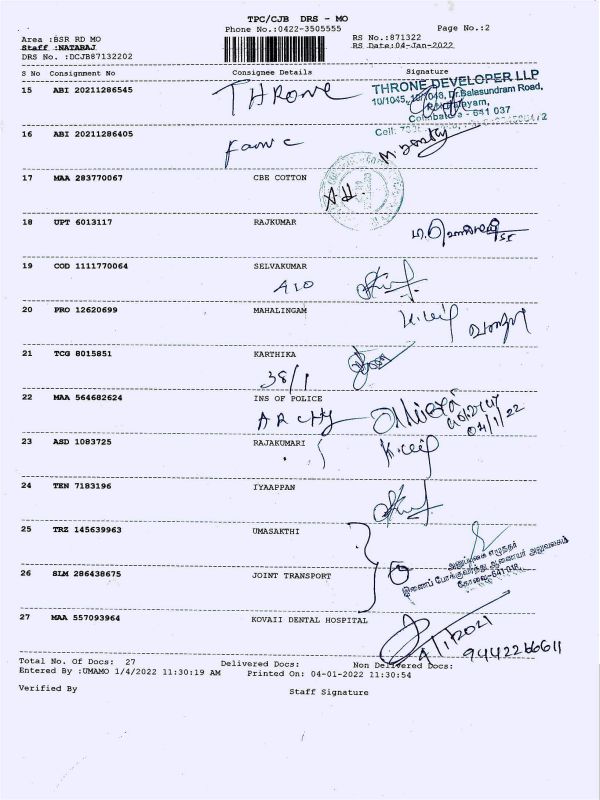 TPC/CJB DRS - MO
Phone No.:0422-3505555
Page No.:2
Area :BSR RD MO
Staff :NATARAJ
DRS No. :DCJB87132202
RS No.:871322
RS Date:04-Jan-2022
S No Consignment No Consignee Details Signature
15 ABI 20211286545 THRONE
THRONE DEVELOPER LLP
10/1045, 10/1048, Dr.Balasundram Road,
Coimbatore - 641 037
Cell:
16 ABI 20211286405
17 MAA 283770067 CBE COTTON
18 UPT 6013117 RAJKUMAR
19 COD 1111770064 SELVAKUMAR
20 PRO 12620699 MAHALINGAM
21 TCG 8015851 KARTHIKA
38/1
22 MAA 564682624 INS OF POLICE
04/1/22
23 ASD 1083725 RAJAKUMARI
24 TEN 7183196 IYAAPPAN
25 TRZ 145639963 UMASAKTHI
26 SLM 286438675 JOINT TRANSPORT
கோவை-641 018
27 MAA 557093964 KOVAII DENTAL HOSPITAL
9442266611
Total No. Of Docs: 27 Delivered Docs: Non Delivered Docs:
Entered By :UMAMO 1/4/2022 11:30:19 AM Printed On: 04-01-2022 11:30:54
Verified By Staff Signature